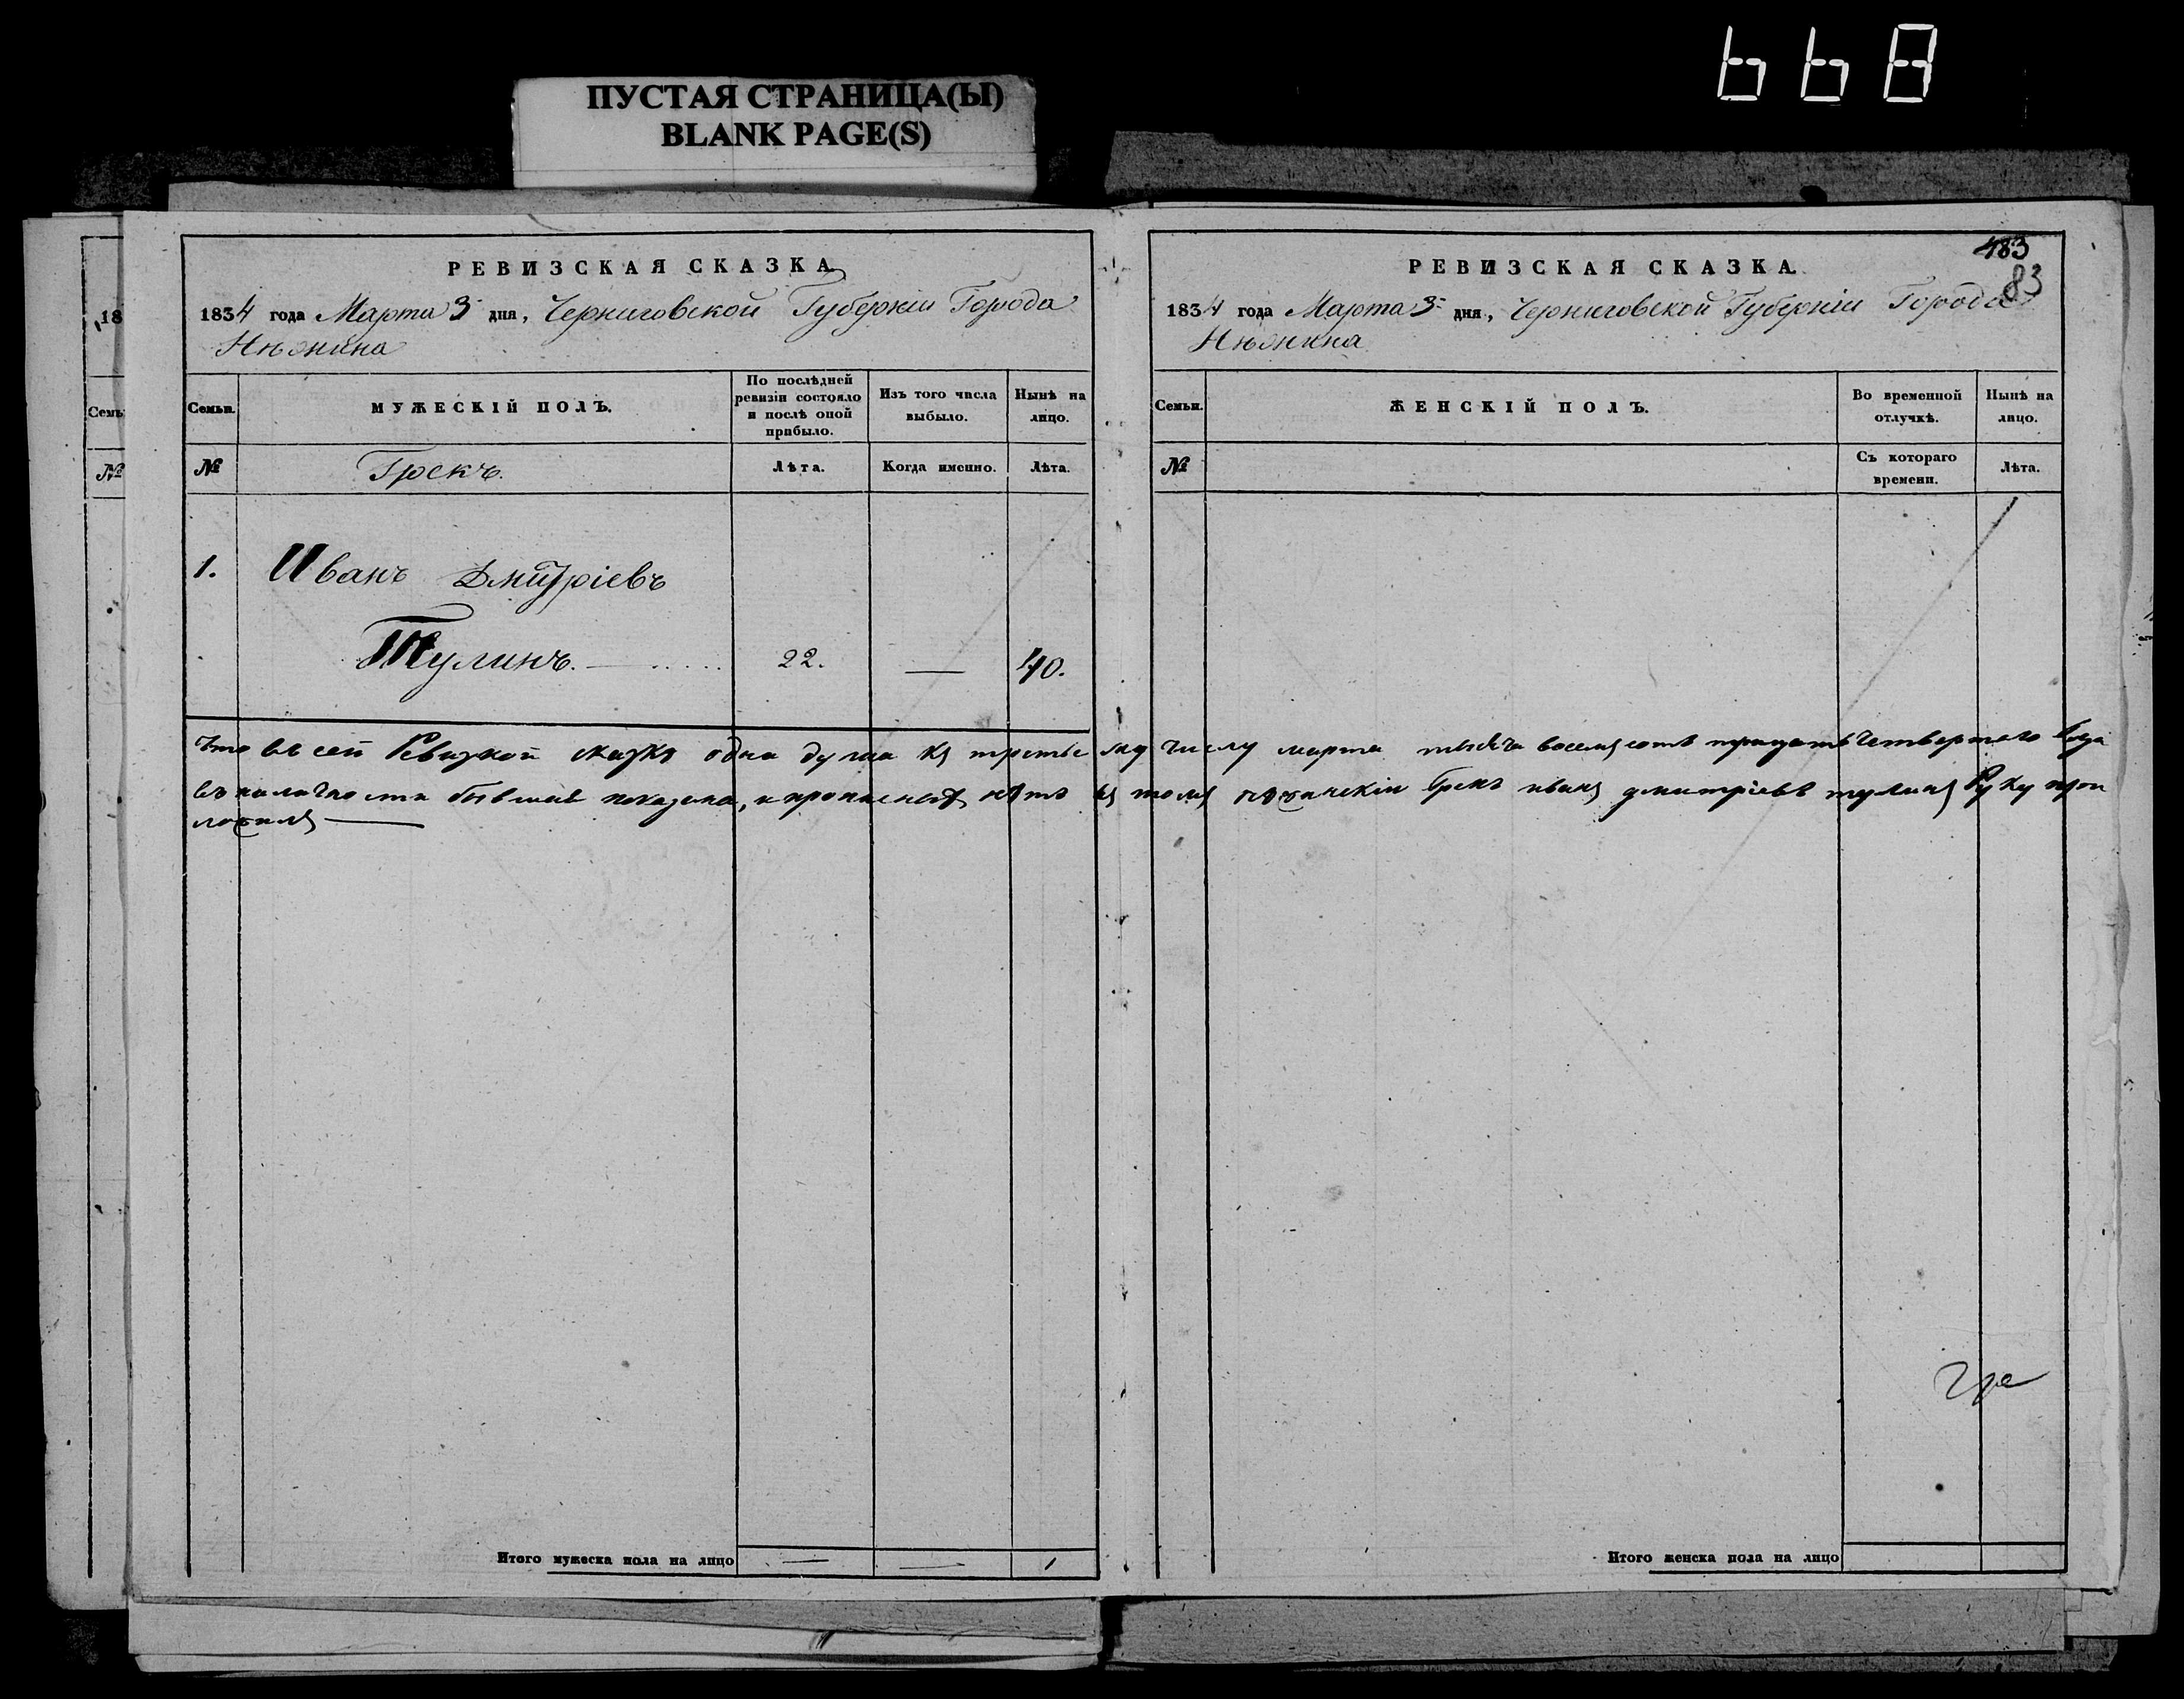 ПУСТАЯ СТРАНИЦА(Ы)
BLANK PAGE(S)
18
Семь
№
РЕВИЗСКАЯ СКАЗКА
1834 года Марта 3 дня, Черниговской Губерніи Города
Нѣжина
Семьи.
МУЖЕСКІЙ ПОЛЪ.
По послѣдней
ревизіи состояло
и послѣ оной
прибыло.
Изъ того числа
выбыло.
Нынѣ на
лицо.
№
Грекъ.
Лѣта.
Когда именно.
Лѣта.
1. Иванъ Дмитріевъ
Тулинъ. 22. — 40.
Итого мужеска пола на лицо — — 1
483
83
РЕВИЗСКАЯ СКАЗКА.
1834 года Марта 3 дня, Черниговской Губерніи Города
Нѣжина
Семьи.
ЖЕНСКІЙ ПОЛЪ.
Во временной
отлучкѣ.
Нынѣ на
лицо.
№
Съ котораго
времени.
Лѣта.
Что въ сей Ревизкой сказкѣ одна душа къ третьему числу марта тысяча восемъ сотъ трицать четвертого года
въ наличности бывшаѣ показана, и прописныхъ нѣтъ въ томъ нѣжинскіи Грекъ иванъ дмитріевъ тулинъ Руку при
ложилъ
Итого женска пола на лицо